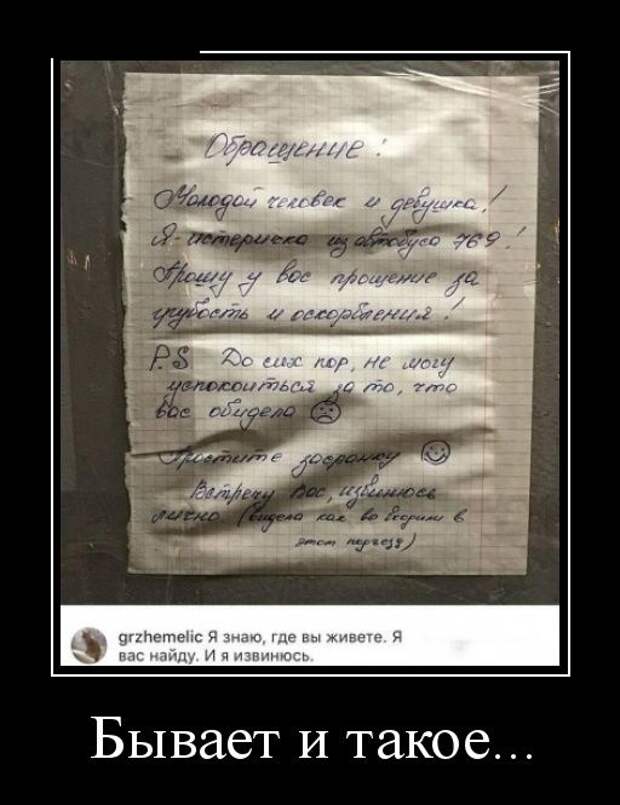 Обращение:
Молодой человек и девушка!
Я-истеричка из автобуса 769!
Прошу у вас прощение за
грубость и оскорбления!
P.S До сих пор, не могу
успокоиться за то, что
вас обидела
Простите засранку
Встречу Вас, извинюсь
лично (видела как вы входили в
этот подъезд)
grzhemelic Я знаю, где вы живете. Я
вас найду. И я извинюсь.
Бывает и такое...